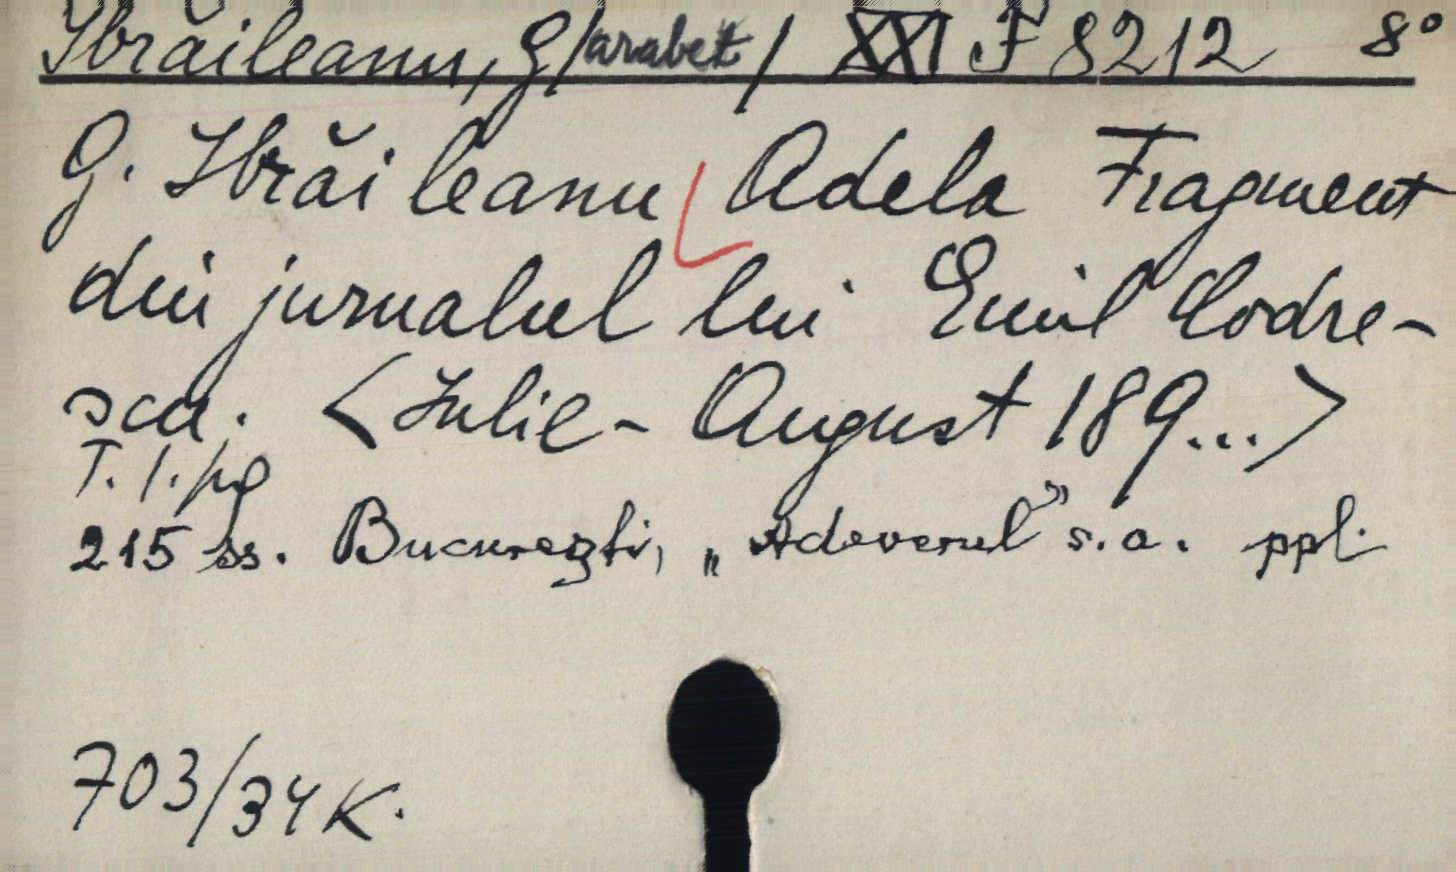 Ibrăileanu, G/arabet/ XXI F 8212 8°
G. Ibrăileanu Adela Fragment
din jurnalul lui Emil Codre-
scu. <Iulie - August 189...>
T. 1. pg
215 ss. București, „Adeverul” s.a. ppl.
703/34 K.